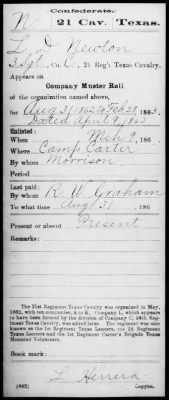 Confederate.
N 21 Cav. Texas.
L. D. Newton
3 Sgt, Co. C, 21 Reg't Texas Cavalry.
Appears on
Company Muster Roll
of the organization named above,
for Aug 31 1862 to Feb 28, 1863.
Dated April 9, 1863
Enlisted:
When Mch 9, 186
Where Camp Carter
By whom Morrison
Period
Last paid:
By whom R. W. Graham
To what time Aug 31, 186
Present or absent Present
Remarks:
The 21st Regiment Texas Cavalry was organized in May,
1862, with ten companies, A to K. Company L, which appears
to have been formed by the division of Company C, 24th Reg-
iment Texas Cavalry, was added later. The regiment was also
known as the 1st Regiment Texas Lancers, the 2d Regiment
Texas Lancers and the 1st Regiment Carter's Brigade Texas
Mounted Volunteers.
Book mark:
L. Herrera
(642) Copyist.